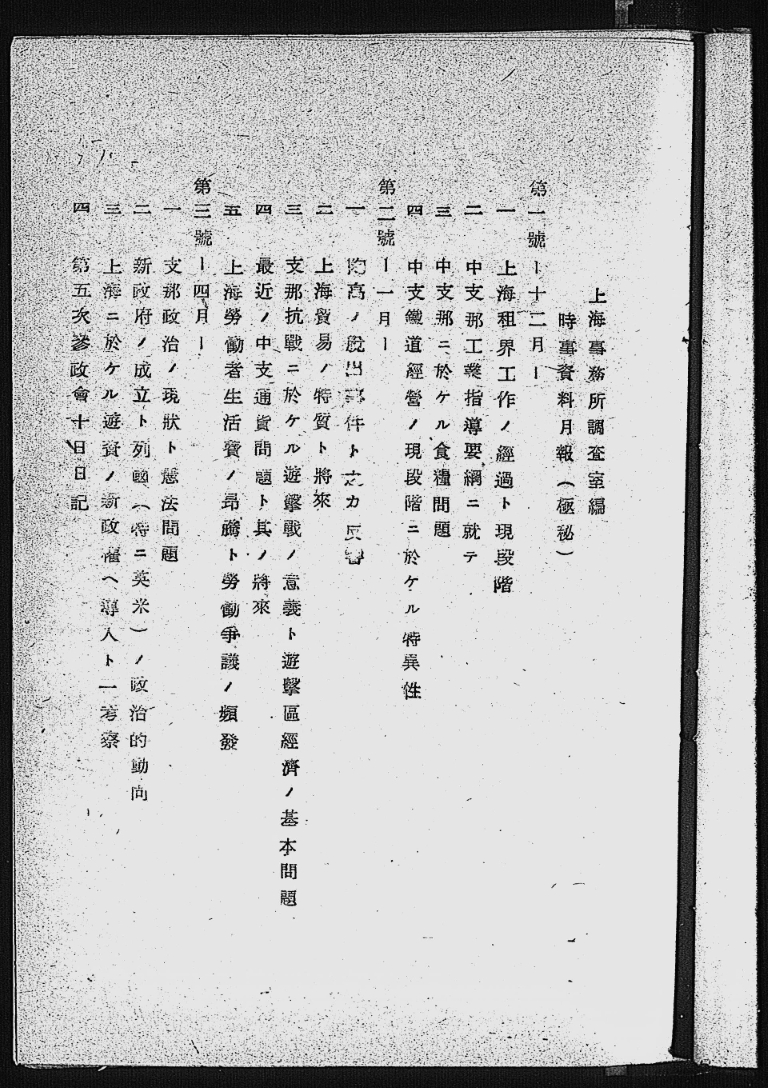 上海事務所調査室編
時事資料月報（極秘）
第一號ー十二月ー
一 上海租界工作ノ經過ト現段階
二 中支那工業指導要綱ニ就テ
三 中支那ニ於ケル食糧問題
四 中支鐵道經營ノ現段階ニ於ケル特異性
第二號ー一月ー
一 高ノ脫出事件ト之カ反響
二 上海貿易ノ特質ト將來
三 支那抗戰ニ於ケル遊擊戰ノ意義ト遊擊區經濟ノ基本問題
四 最近ノ中支通貨問題ト其ノ將來
五 上海勞働者生活費ノ昂騰ト勞働爭議ノ頻發
第三號ー四月ー
一 支那政治ノ現狀ト憲法問題
二 新政府ノ成立ト列國（特ニ英米）ノ政治的動向
三 上海ニ於ケル遊資ノ新政權ヘ導入ト一考察
四 第五次參政會十日日記